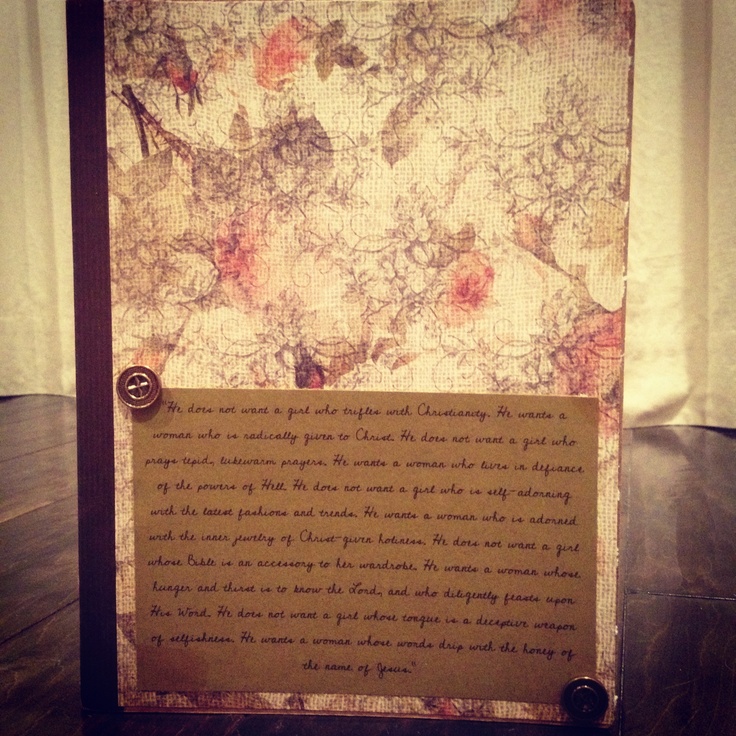 "He does not want a girl who trifles with Christianity. He wants a
woman who is radically given to Christ. He does not want a girl who
prays tepid, lukewarm prayers. He wants a woman who lives in defiance
of the powers of Hell. He does not want a girl who is self-adorning
with the latest fashions and trends. He wants a woman who is adorned
with the inner jewelry of Christ-given holiness. He does not want a girl
whose Bible is an accessory to her wardrobe. He wants a woman whose
hunger and thirst is to know the Lord, and who diligently feasts upon
His Word. He does not want a girl whose tongue is a deceptive weapon
of selfishness. He wants a woman whose words drip with the honey of
the name of Jesus."